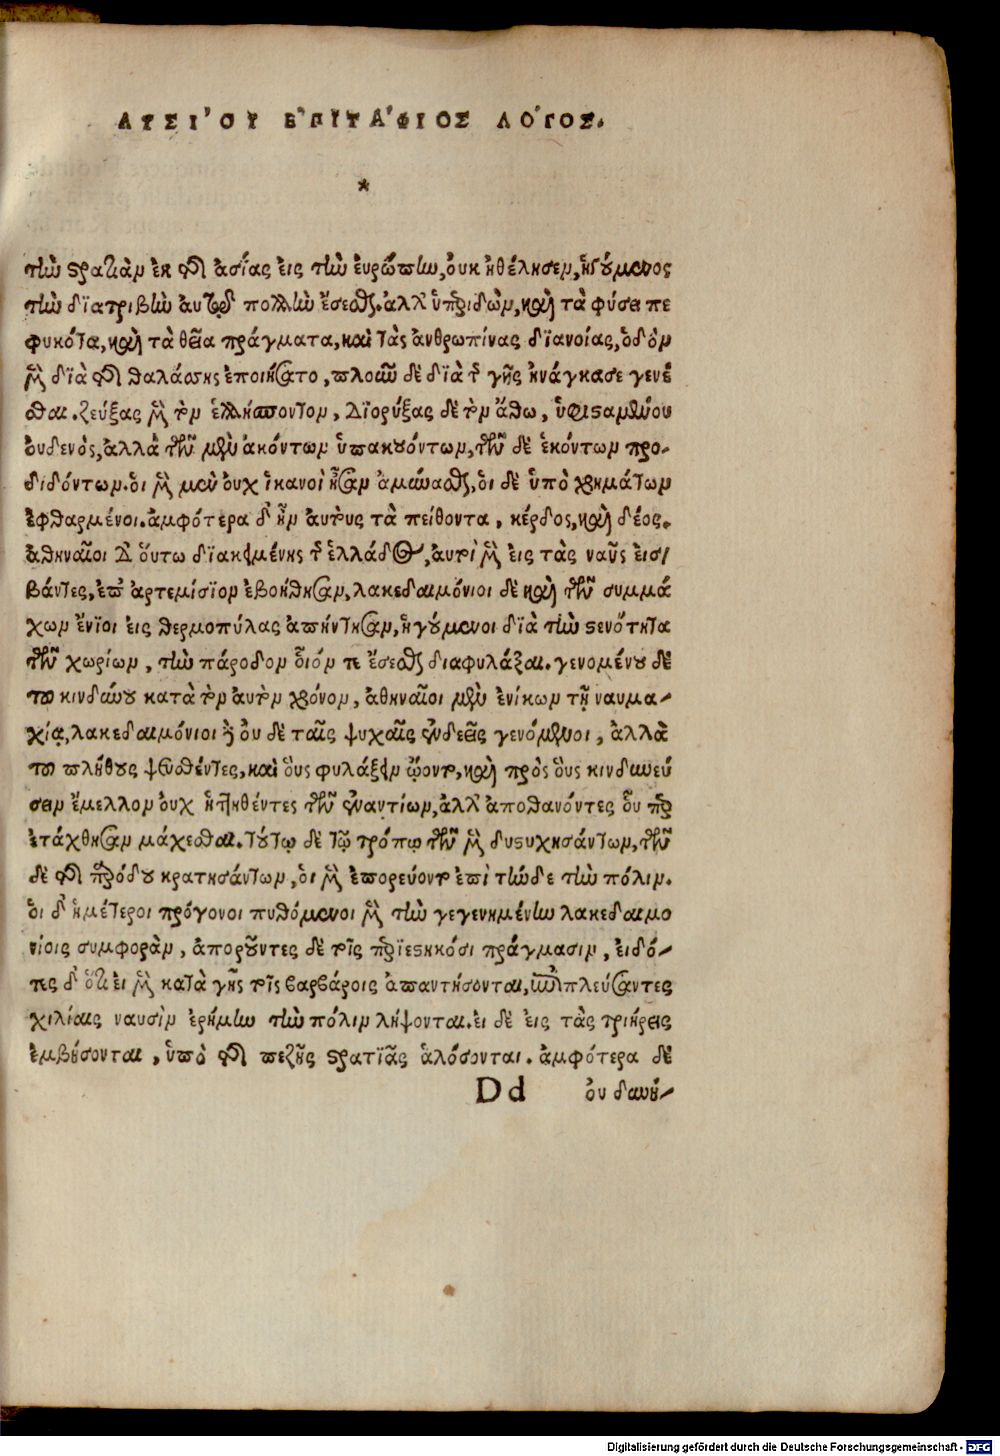 ΛΥΣΙ'ΟΥ ΕΠΙΤΑ'ΦΙΟΣ ΛΟ'ΓΟΣ.
*
τὴν στρατιὰν ἐκ τῆς ἀσίας εἰς τὴν ἐυρώπην, ὀυκ ἠθέλησεν, ἡγούμενος
τὴν διατριβὴν ἀυτῷ πολλὴν ἔσεσθαι. ἀλλ' ὑπεριδὼν, καὶ τὰ φύσει πε
φυκότα, καὶ τὰ θεῖα πράγματα, καὶ τὰς ἀνθρωπίνας διανοίας, ὁδὸν
μὲν διὰ τῆς θαλάσσης ἐποιήσατο, πλοῦν δὲ διὰ τῆς γῆς ἠνάγκασε γενέ
σθαι. ζεύξας μὲν τὸν ἑλλήσποντον, διορύξας δὲ τὸν ἄθω, ὑφισταμένου
ὀυδενὸς, ἀλλὰ τῶν μὲν ἀκόντων ὑπακουόντων, τῶν δὲ ἑκόντων προ-
διδόντων. ὁι μὲν μὲν ὀυχ ἱκανοὶ ἦσαν ἀμύνασθαι, ὁι δὲ ὑπὸ χρημάτων
ἐφθαρμένοι. ἀμφότερα δ' ἦν ἀυτοὺς τὰ πείθοντα, κέρδος, καὶ δέος.
ἀθηναῖοι δ' ὅυτω διακειμένης τῆς ἑλλάδος, ἀυτοὶ μὲν εἰς τὰς ναῦς εἰσ/
βάντες, ἐπ' ἀρτεμίσιον ἐβοήθησαν, λακεδαιμόνιοι δὲ καὶ τῶν συμμά
χων ἔνιοι εἰς θερμοπύλας ἀπήντησαν, ἡγούμενοι διὰ τὴν στενότητα
τῶν χωρίων, τὴν πάροδον ὁιόν τε ἔσεσθαι διαφυλάξαι. γενομένου δὲ
του κινδύνου κατὰ τὸν ἀυτὸν χρόνον, ἀθηναῖοι μὲν ἐνίκων τῇ ναυμα-
χίᾳ, λακεδαιμόνιοι δὲ ὀυ δὲ ταῖς ψυχαῖς ἐνδεεῖς γενόμενοι, ἀλλὰ
του πλήθους ψευσθέντες, καὶ ὁὺς φυλάξειν ᾤοντο, καὶ πρὸς ὁὺς κινδυνεύ
σειν ἔμελλον ὀυχ ἡττηθέντες τῶν ἐναντίων, ἀλλ' ἀποθανόντες ὁῦ περ
ἐτάχθησαν μάχεσθαι. τούτῳ δὲ τῷ τρόπῳ τῶν μὲν δυστυχησάντων, τῶν
δὲ τῆς παρόδου κρατησάντων, ὁι μὲν ἐπορεύοντο ἐπὶ τήνδε τὴν πόλιν.
ὁι δ' ἡμέτεροι πρόγονοι πυθόμενοι μὲν τὴν γεγενημένην λακεδαιμο
νίοις συμφορὰν, ἀποροῦντες δὲ τοῖς περιεστηκόσι πράγμασιν, ἐιδό-
τες δ' ὅτι ἐι μὲν κατὰ γῆς τοῖς βαρβάροις ἀπαντήσονται, ἐπιπλεύσαντες
χιλίαις ναυσὶν ἐρήμην τὴν πόλιν λήψονται. ἐι δὲ εἰς τὰς τριήρεις
ἐμβήσονται, ὑπὸ τῆς πεζῆς στρατιᾶς ἁλόσονται. ἀμφότερα δὲ
Dd ὀυ δυνή-
Digitalisierung gefördert durch die Deutsche Forschungsgemeinschaft - DFG